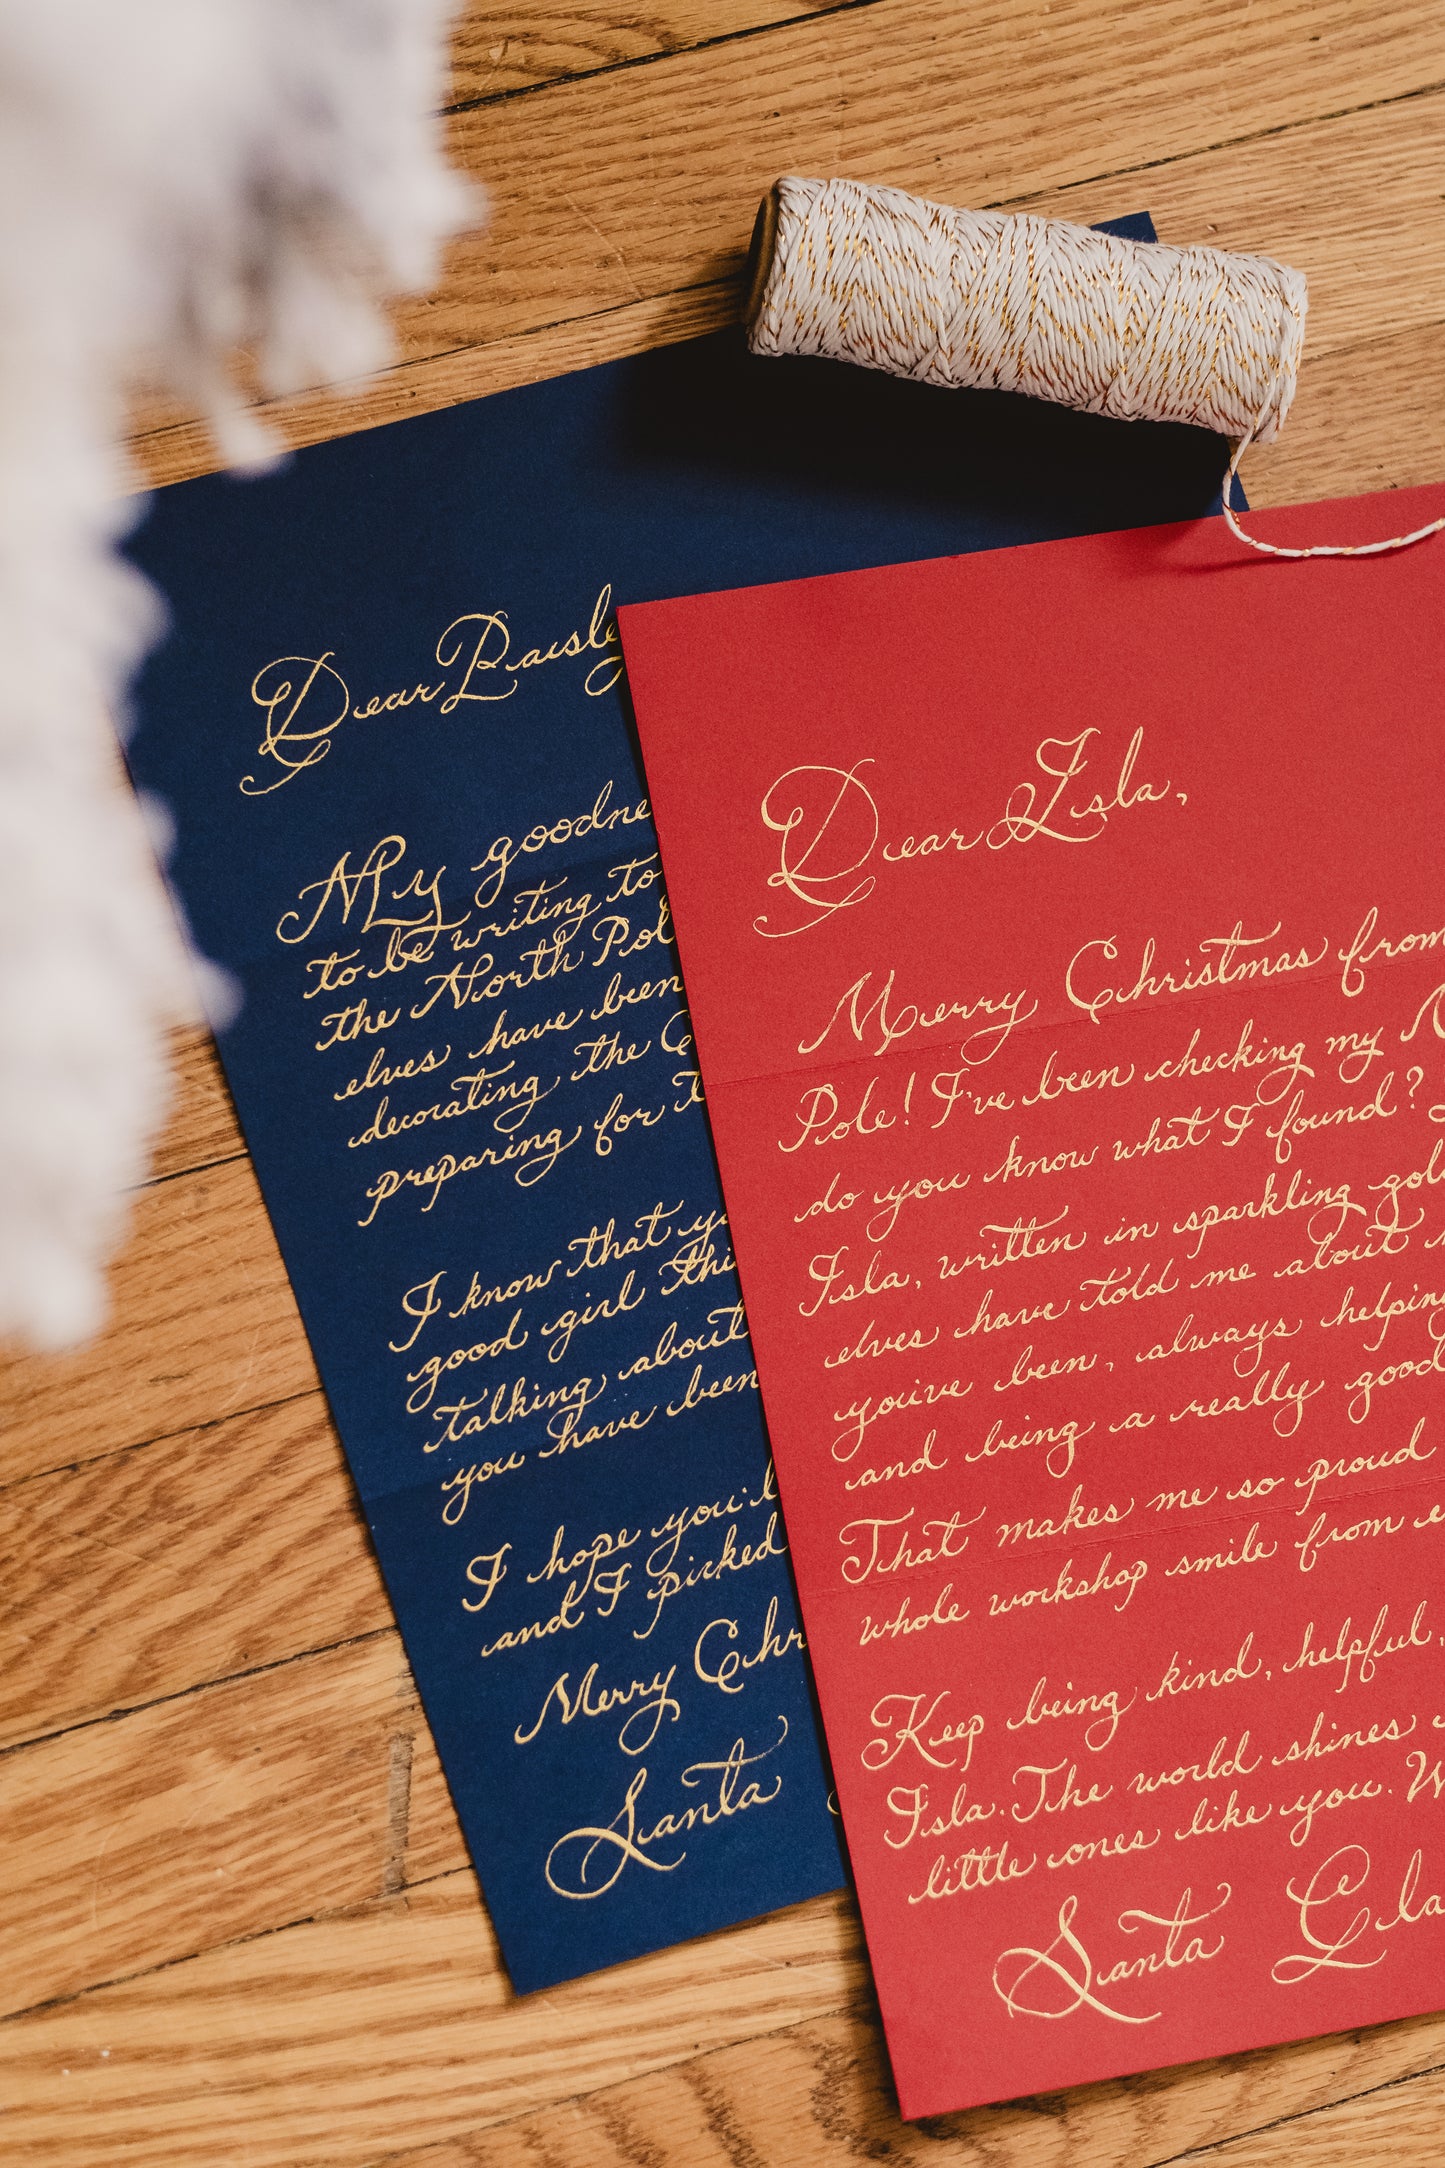 Dear Paisley
My goodne
to be writing to
the North Pol
elves have been
decorating the C
preparing for t
I know that y
good girl thi
talking about
you have been
I hope you'l
and I picked
Merry Chr
Santa
Dear Isla,
Merry Christmas from
Pole! I've been checking my N
do you know what I found?
Isla, written in sparkling gol
elves have told me about
you've been, always helping
and being a really good
That makes me so proud
whole workshop smile from
Keep being kind, helpful,
Isla. The world shines
little ones like you. W
Santa Cla